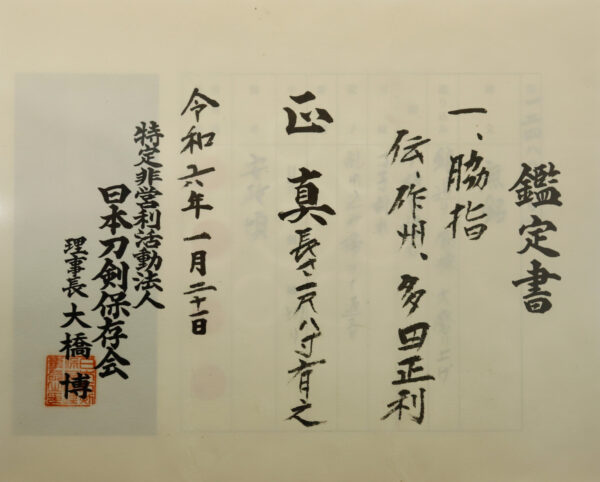 鑑定書
一、脇指
伝、作州、多田正利
正真 長さ、一尺八寸有之
令和六年一月二十一日
特定非営利活動法人
日本刀剣保存会
理事長 大橋博